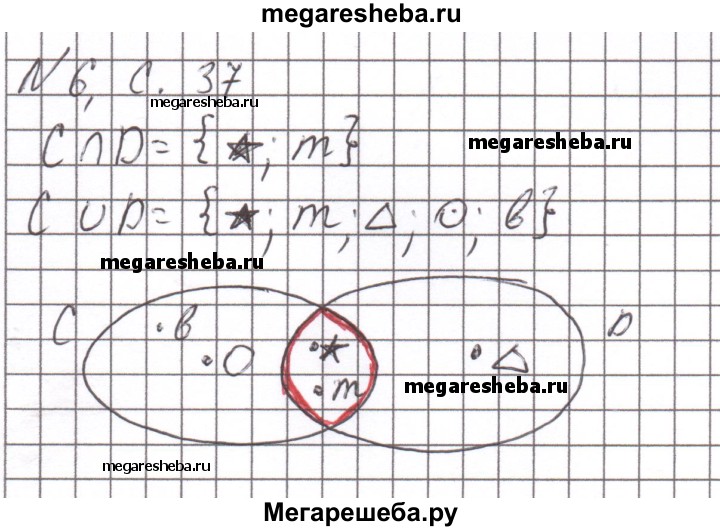 megaresheba.ru
№ 6, с. 37
megaresheba.ru
C ∩ D = {★; m}
megaresheba.ru
C ∪ D = {★; m; △; O; в}
megaresheba.ru
C
в
D
O
★
△
m
megaresheba.ru
megaresheba.ru
Мегарешеба.ру